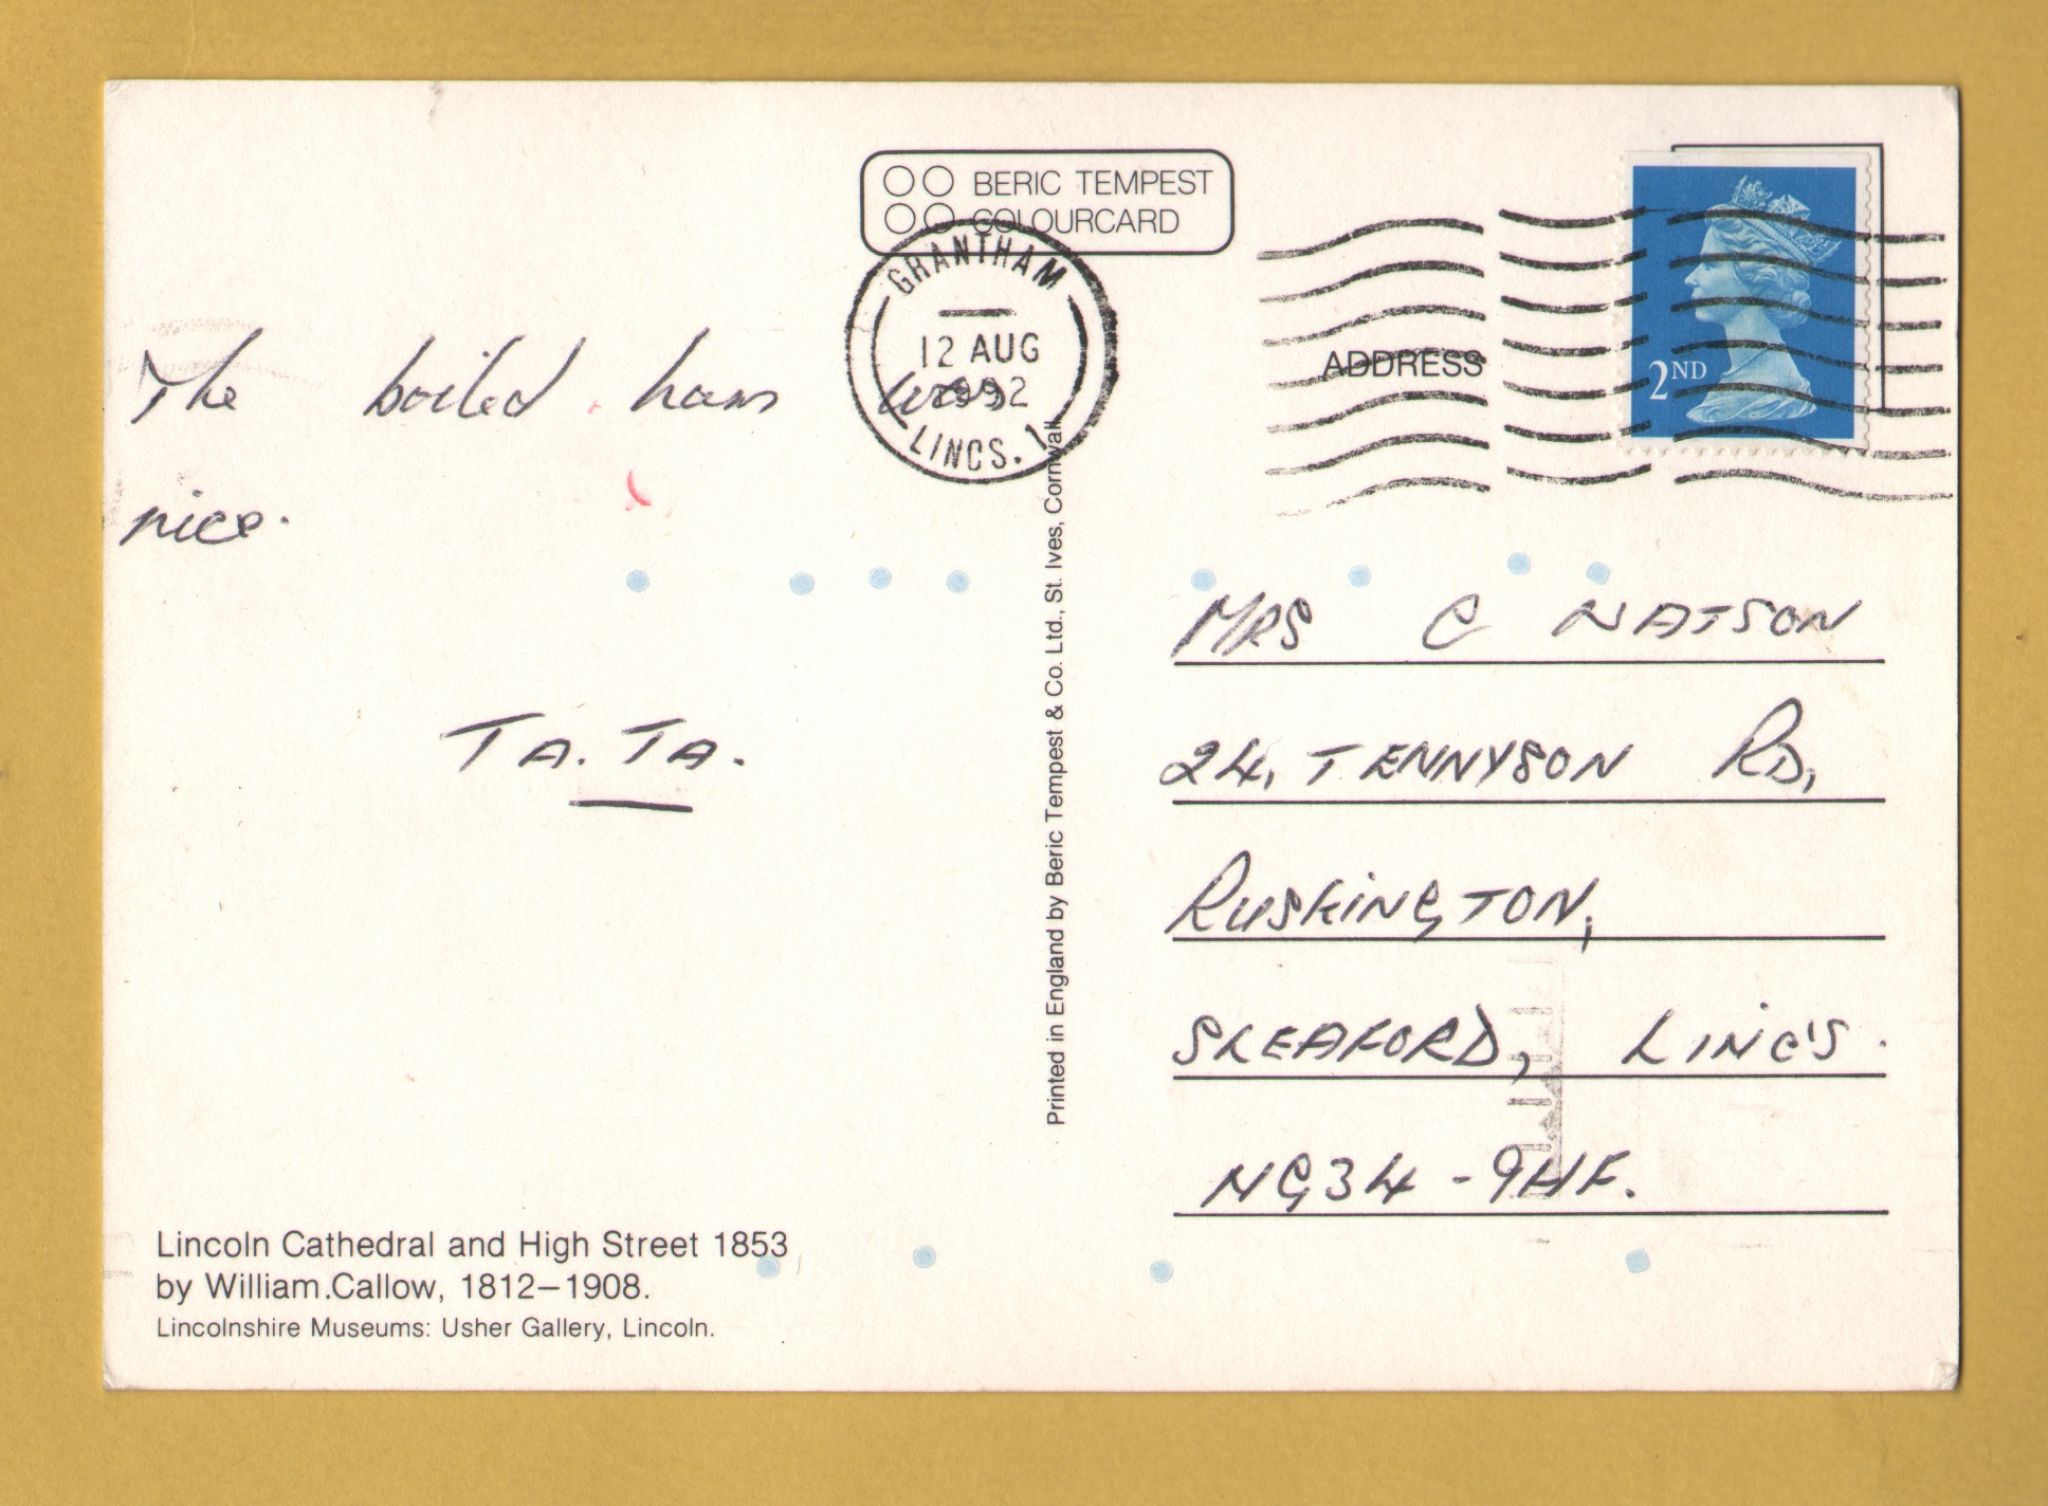 BERIC TEMPEST
COLOURCARD
GRANTHAM
12 AUG
1992
LINCS. 1
ADDRESS
2ND
The boiled ham was
nice.
TA. TA.
MRS C WATSON
24, TENNYSON RD,
RUSKINGTON,
SLEAFORD, LINC'S.
NG34-9HF.
Printed in England by Beric Tempest & Co. Ltd., St. Ives, Cornwall.
Lincoln Cathedral and High Street 1853
by William.Callow, 1812–1908.
Lincolnshire Museums: Usher Gallery, Lincoln.